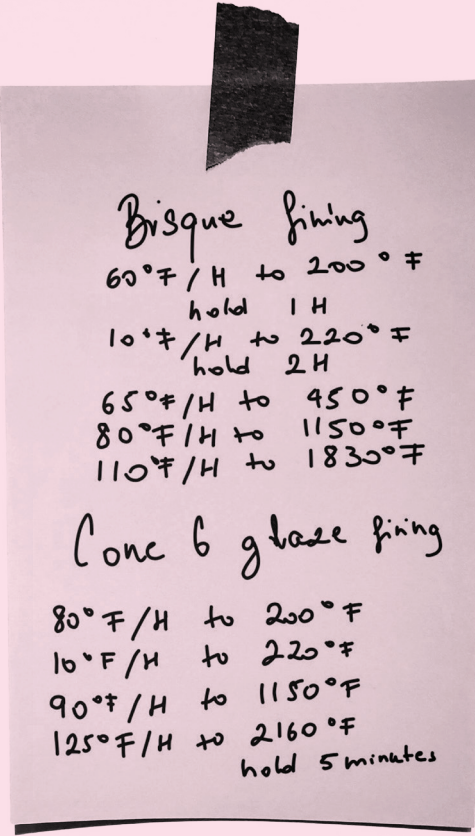 Bisque firing
60°F/H to 200°F
hold 1H
10°F/H to 220°F
hold 2H
65°F/H to 450°F
80°F/H to 1150°F
110°F/H to 1830°F
Cone 6 glaze firing
80°F/H to 200°F
10°F/H to 220°F
90°F/H to 1150°F
125°F/H to 2160°F
hold 5 minutes